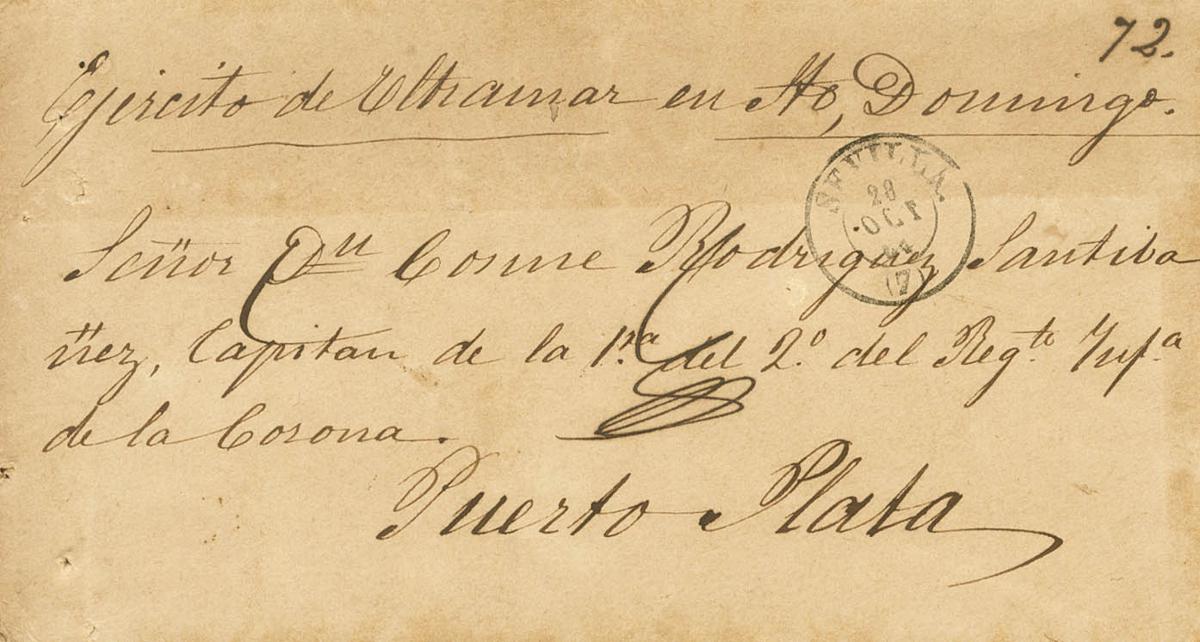 72.
Ejército de Ultramar en Sto, Domingo.
SEVILLA.
28
OCT
(7)
Señor Dn Cosme Rodriguez Santiba
ñez, Capitan de la 1ra del 2o del Regto Infa
de la Corona.
Puerto Plata